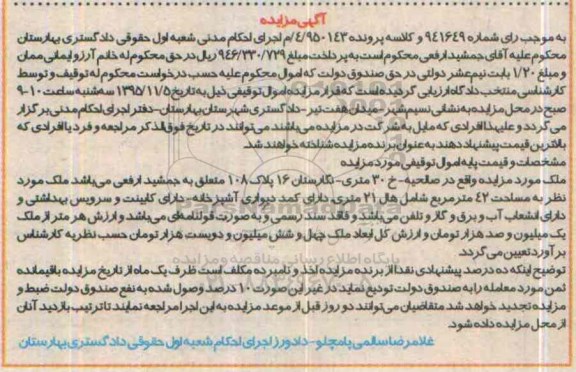 آگهی مزایده
به موجب رای شماره ۹۴۱۶۴۹ و کلاسه پرونده ۹۵۰۱۴۳/۴/م اجرای احکام مدنی شعبه اول حقوقی دادگستری بهارستان
محکوم علیه آقای جمشید ارفعی محکوم است به پرداخت مبلغ ۹۴۶/۳۳۰/۷۲۹ ریال در حق محکوم له خانم آرزو ایمانی ممان
و مبلغ ۱/۲۰ بابت نیم عشر دولتی در حق صندوق دولت که اموال محکوم علیه حسب درخواست محکوم له توقیف و توسط
کارشناسی منتخب دادگاه ارزیابی گردیده است که قرار مزایده اموال توقیفی ذیل به تاریخ ۱۳۹۵/۱۱/۵ سه شنبه ساعت ۱۰-۹
صبح در محل مزایده به نشانی نسیم شهر - میدان هفت تیر - دادگستری شهرستان بهارستان - دفتر اجرای احکام مدنی برگزار
می گردد و علیهذا افرادی که مایل به شرکت در مزایده می باشند می توانند در تاریخ فوق الذکر مراجعه و فرد یا افرادی که
بالاترین قیمت پیشنهاد دهند به عنوان برنده مزایده شناخته خواهند شد.
مشخصات و قیمت پایه اموال توقیفی مورد مزایده
ملک مورد مزایده واقع در صالحیه - خ ۳۰ متری - نگارستان ۱۶ پلاک ۱۰۸ متعلق به جمشید ارفعی می باشد ملک مورد
نظر به مساحت ۴۲ مترمربع شامل هال ۲۱ متری، دارای کمد دیواری آشپزخانه - دارای کابینت و سرویس بهداشتی و
دارای انشعاب آب و برق و گاز و تلفن می باشد و فاقد سند رسمی و به صورت قولنامه ای می باشد و ارزش هر متر از ملک
یک میلیون و صد هزار تومان و ارزش کل ابعاد ملک چهل و شش میلیون و دویست هزار تومان حسب نظریه کارشناس
بر آورد تعیین می گردد.
توضیح اینکه ده درصد پیشنهادی نقدا از برنده مزایده اخذ و نامبرده مکلف است ظرف یک ماه از تاریخ مزایده باقیمانده
ثمن مورد معامله را به صندوق دولت تودیع نماید در غیر این صورت ۱۰ درصد وصول شده به نفع صندوق دولت ضبط و
مزایده تجدید خواهد شد. متقاضیان می توانند دو روز قبل از موعد مزایده به این اجرا مراجعه نمایند تا ترتیب بازدید آنان
از محل مزایده داده شود.
غلامرضا سالمی پامچلو - دادورز اجرای احکام شعبه اول حقوقی دادگستری بهارستان